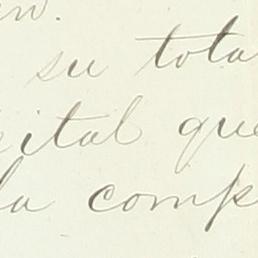 su tota
ital que
la comp